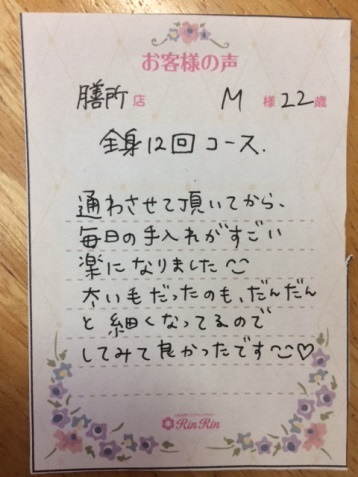 お客様の声
膳所店 M 様 22歳
全身12回コース.
通わさせて頂いてから、
毎日の手入れがすごい
楽になりました
太い毛だったのも、だんだん
と細くなってるので
してみて良かったです♡
RinRin